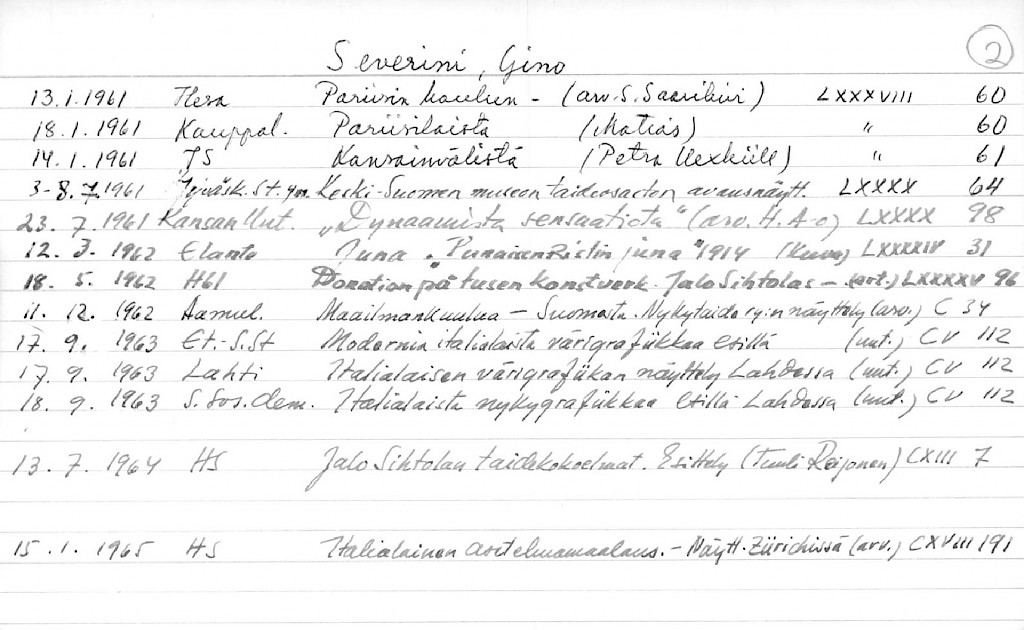 2
Severini, Gino
13.1.1961 Hesa Pariisin koulun - (arv. S. Saarikivi) LXXXVIII 60
18.1.1961 Kauppal. Pariisilaista (Matias) " 60
14.1.1961 JS Kansainvälistä (Petra Uexküll) " 61
3-8.7.1961 Jyväsk. St. ym. Keski-Suomen museon taideosaston avausnäytt. LXXXX 64
23.7.1961 Kansan Uut. "Dynaamista sensaatiota" (arv. H. A-o) LXXXX 98
12.3.1962 Elanto Juna "Punaisen Ristin juna" 1914 (kuva) LXXXXIV 31
18.5.1962 Hbl Donation på tusen konstverk. Jalo Sihtolas - (art.) LXXXXV 96
11.12.1962 Aamul. Maailmankuulua - Suomesta. Nykytaide ry:n näyttely (arv.) C 34
17.9.1963 Et.-S.St Modernia italialaista värigrafiikkaa esillä (uut.) CV 112
17.9.1963 Lahti Italialaisen värigrafiikan näyttely Lahdessa (uut.) CV 112
18.9.1963 S. Sos.dem. Italialaista nykygrafiikkaa esillä Lahdessa (uut.) CV 112
13.7.1964 HS Jalo Sihtolan taidekokoelmat. Esittely (Tuuli Reijonen) CXIII 7
15.1.1965 HS Italialainen asetelmamaalaus. - Näytt. Zürichissä (arv.) CXVIII 191